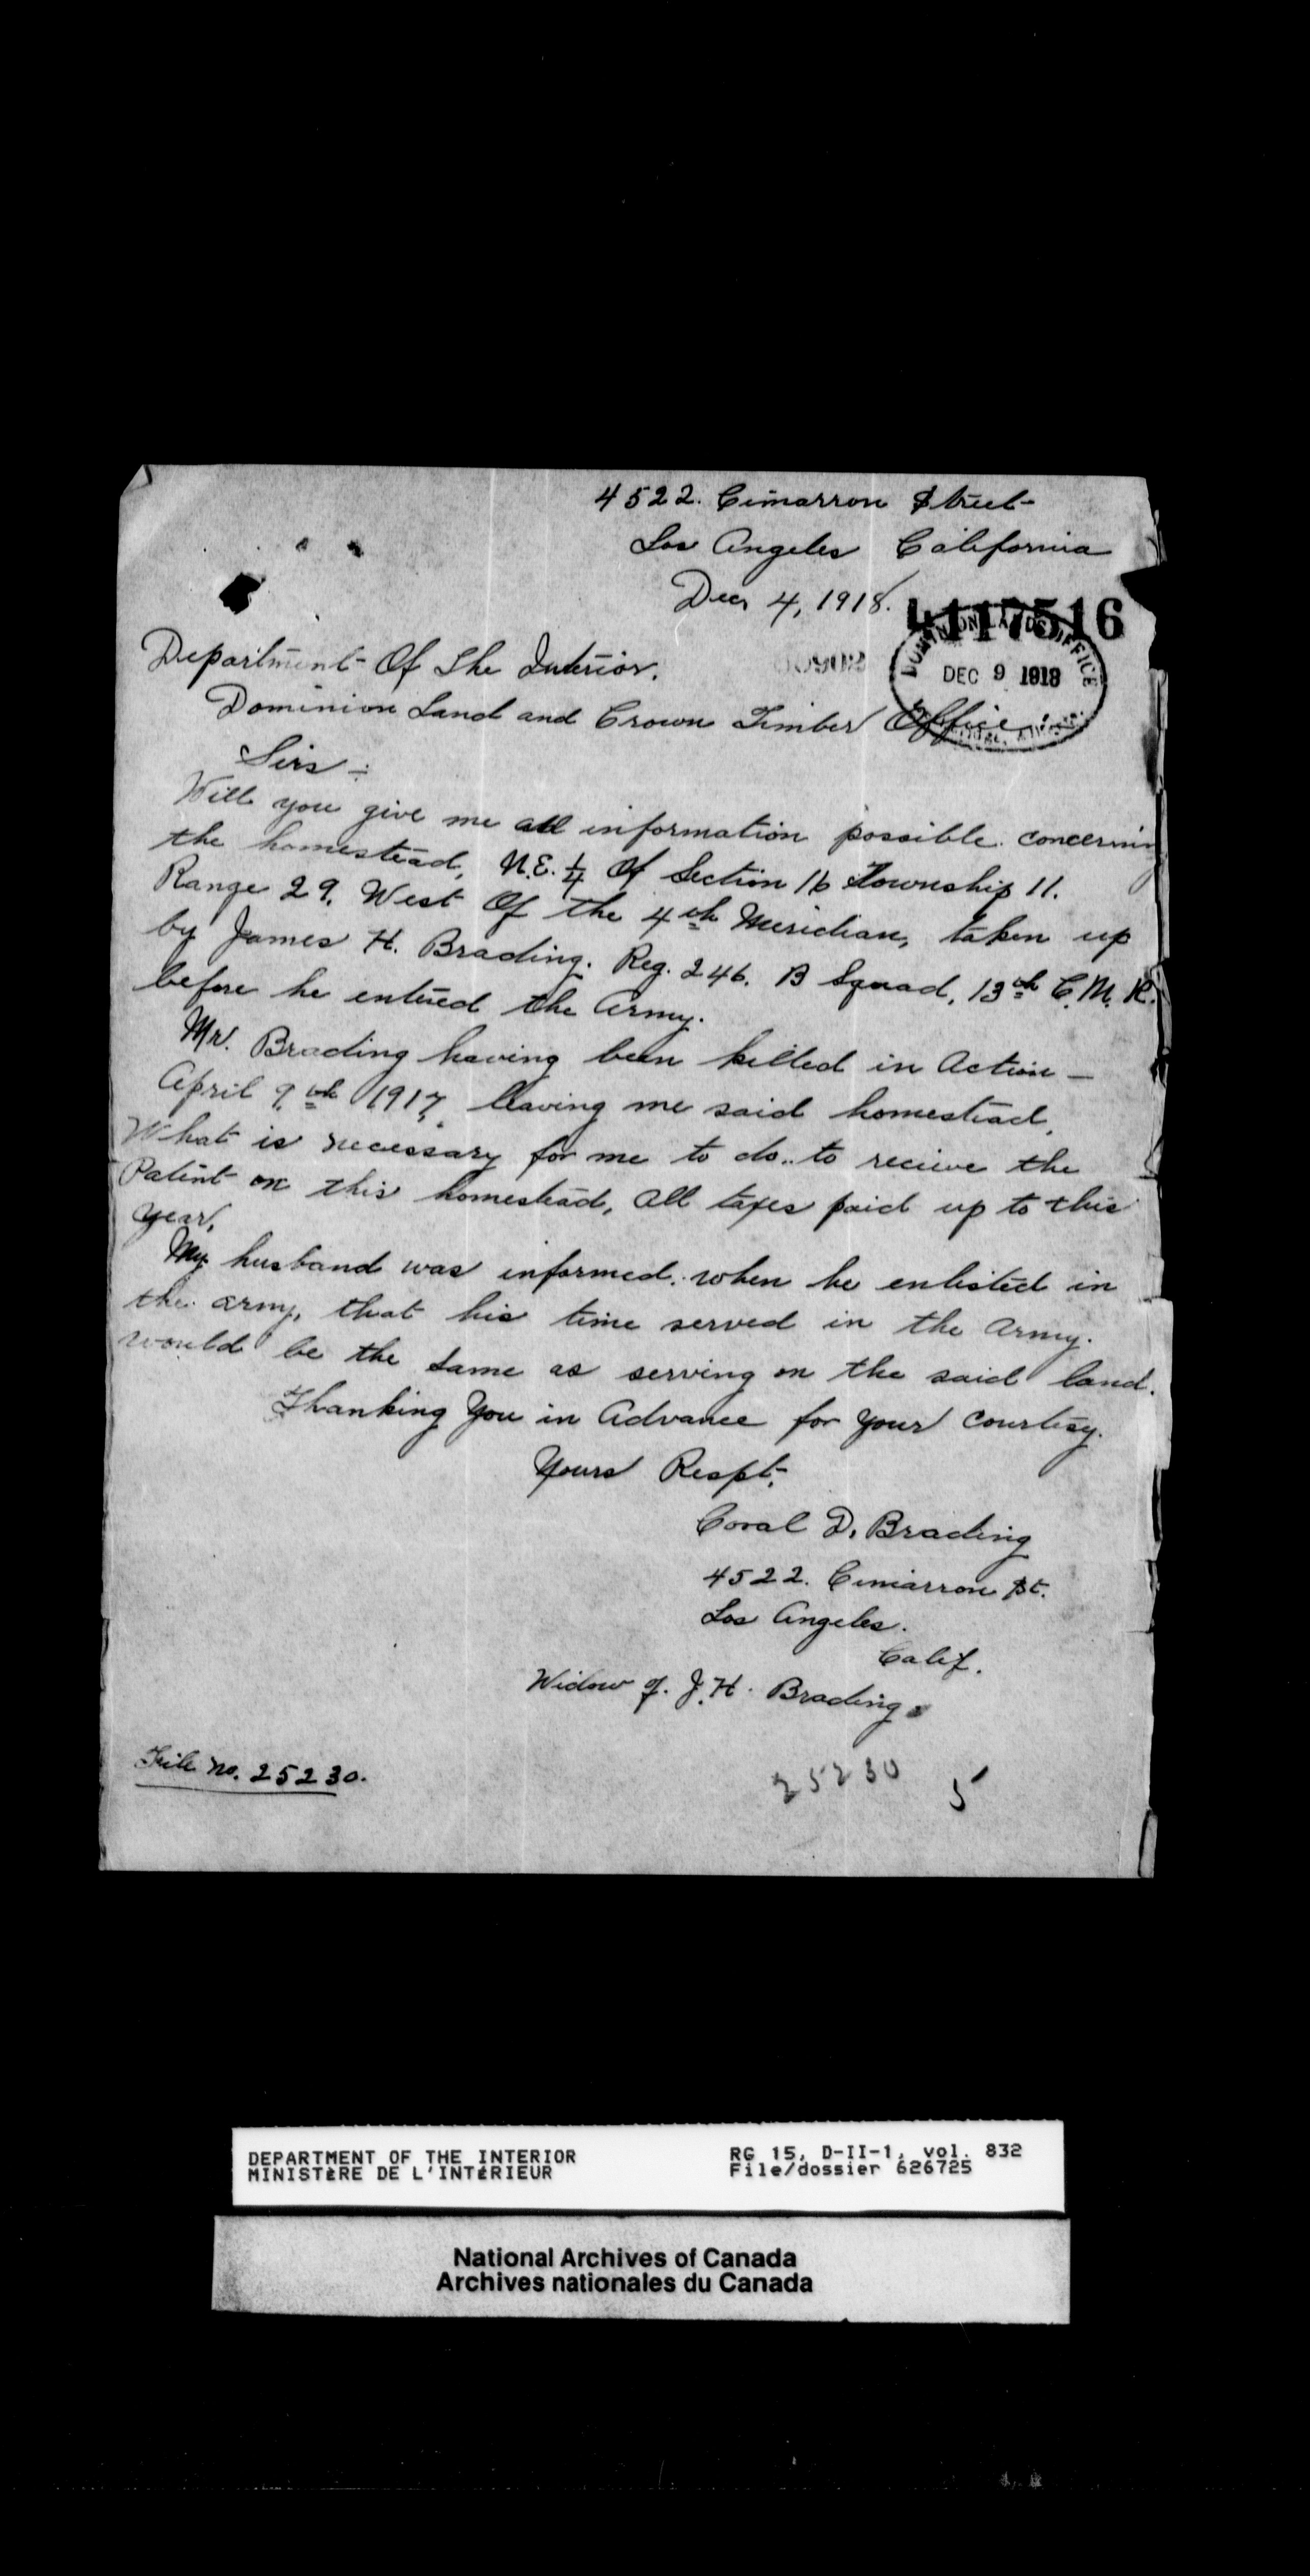 4522. Cimarron Street
Los Angeles California
Dec 4, 1918.
4117516
DOMINION LANDS OFFICE
DEC 9 1918
Department Of The Interior.
Dominion Land and Crown Timber Office.
Sirs -
Will you give me all information possible concerning
the homestead, N.E. 1/4 Of Section 16 Township 11.
Range 29. West Of the 4th Meridian, taken up
by James H. Brading. Reg. 246. B Squad, 13th C.M.R.
before he entered the Army.
Mr. Brading having been killed in Action -
April 9th 1917, leaving me said homestead,
What is necessary for me to do.. to recieve the
Patent on this homestead, all taxes paid up to this
year,
My husband was informed. when he enlisted in
the army, that his time served in the Army.
would be the same as serving on the said land.
Thanking You in Advance for your courtesy.
Yours Respt,
Coral D. Brading
4522. Cimarron St.
Los Angeles.
Calif.
Widow of. J.H. Brading.
File no. 25230.
25230 5
DEPARTMENT OF THE INTERIOR RG 15, D-II-1, vol. 832
MINISTÈRE DE L'INTÉRIEUR File/dossier 626725
National Archives of Canada
Archives nationales du Canada